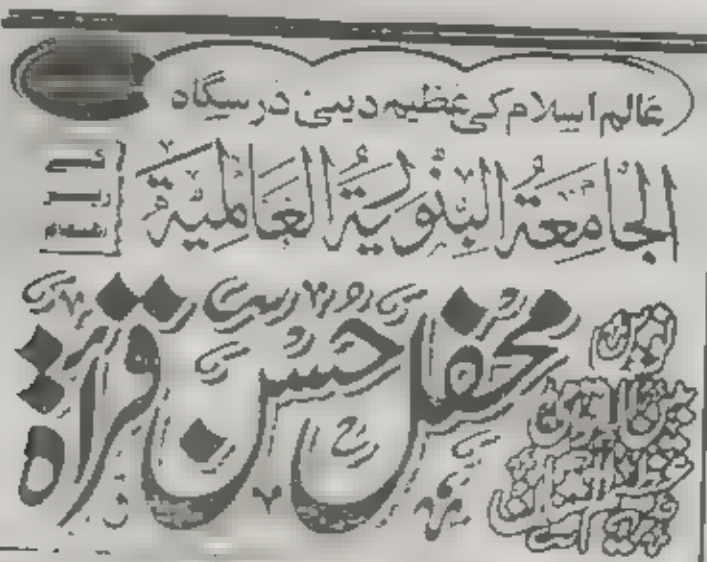 عالم اسلام کی عظیم دینی درسگاہ
الجامعة البنورية العالمية
کے
زیر
اہتمام
محفل حسن قرآة